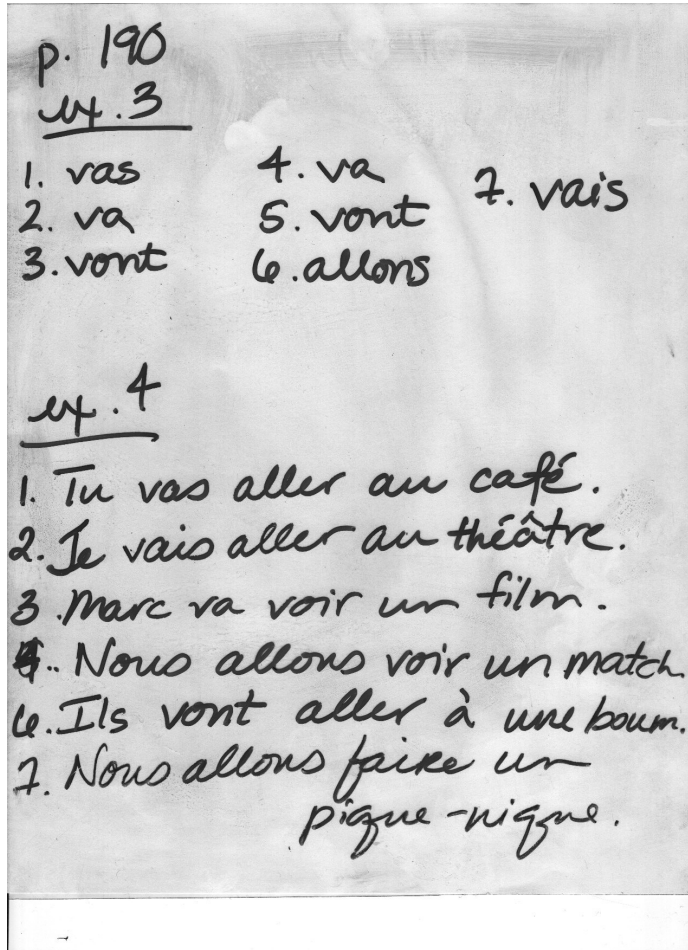 p. 190
ex. 3
1. vas
2. va
3. vont
4. va
5. vont
6. allons
7. vais
ex. 4
1. Tu vas aller au café.
2. Je vais aller au théâtre.
3. Marc va voir un film.
Nous allons voir un match.
6. Ils vont aller à une boum.
7. Nous allons faire un
pique-nique.